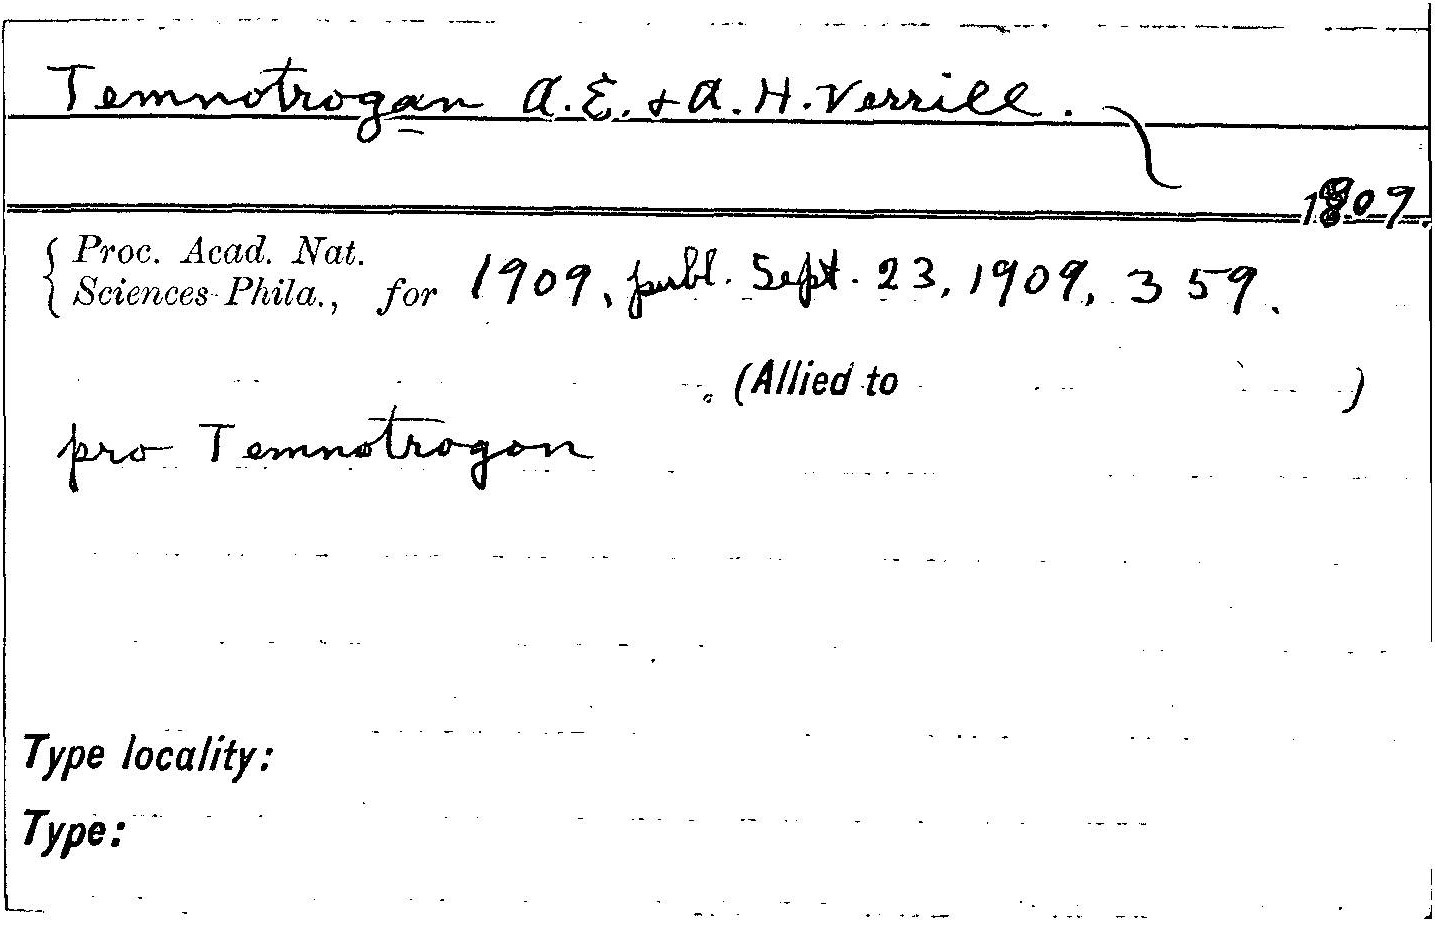 Temnotrogan A. E. & A. H. Verrill.
1909.
Proc. Acad. Nat.
Sciences Phila., for 1909, publ. Sept. 23, 1909, 359.
(Allied to )
pro Temnotrogon
Type locality:
Type: